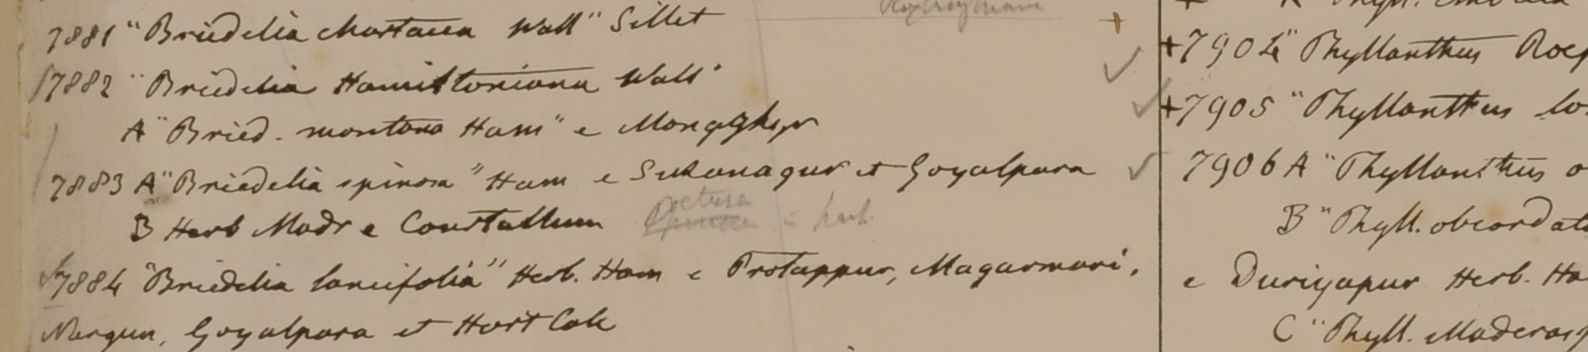 7881 "Briedelia chartacea Wall" Sillet
7882 "Briedelia Hamiltoniana Wall"
A "Bried. montana Ham" e Mongghyr
7883 A "Briedelia spinosa" Ham e Sukanagur et Goyalpara
B Herb Madr e Courtallum
retusa
Spinosa in herb.
7884 "Briedelia lancifolia" Herb. Ham e Protappur, Magarmari,
Goyalpara et Hort Calc
+
+7904 "Phyllanthus
+7905 "Phyllanthus
7906 A "Phyllanthus
B "Phyll. obcordat
e Durigapur Herb. Ha
C "Phyll. Maderas